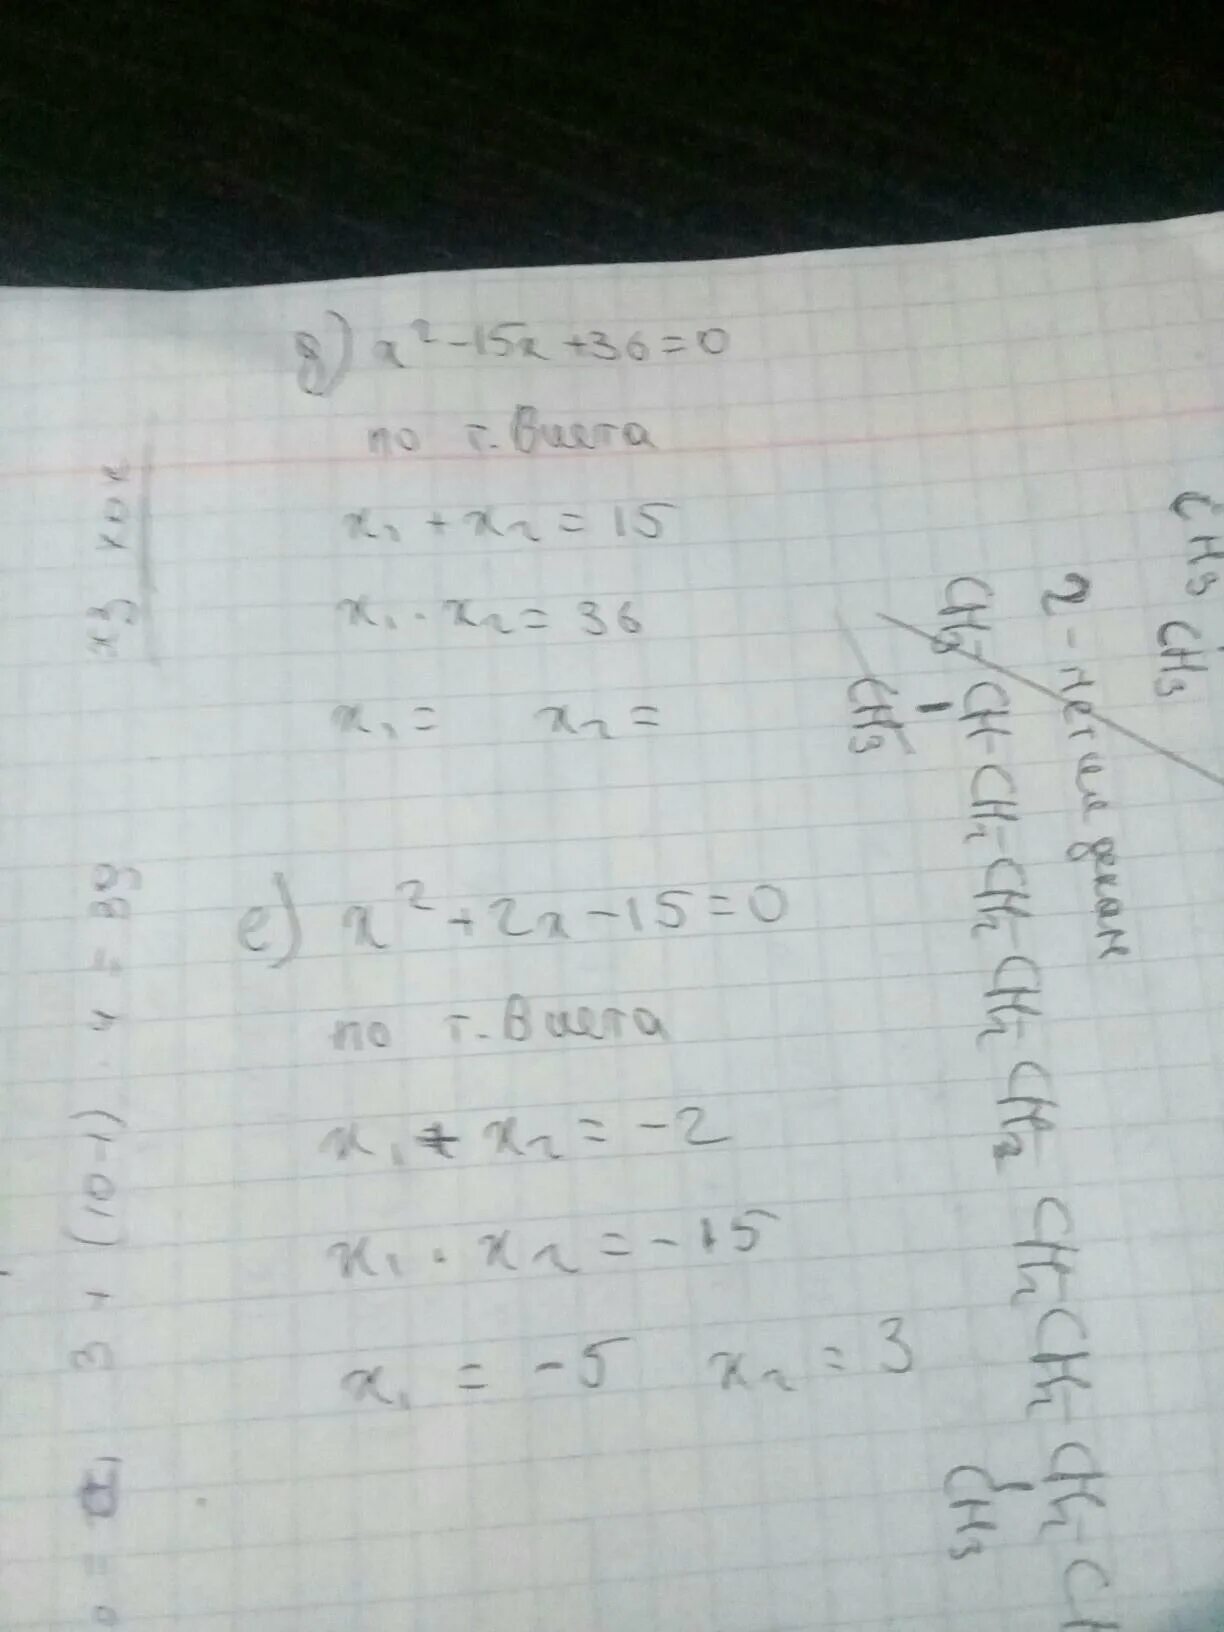 д) x² - 15x + 36 = 0
по т. Виета
x₁ + x₂ = 15
x₁ · x₂ = 36
x₁ = x₂ =
е) x² + 2x - 15 = 0
по т. Виета
x₁ + x₂ = -2
x₁ · x₂ = -15
x₁ = -5 x₂ = 3
3 + (10-1) · 4 = 39
CH₃
CH₃
2-метил декан
CH₃-CH-CH₂-CH₂-CH₂-CH₂-CH₂-CH₂-CH₂-C
CH₃
CH₃